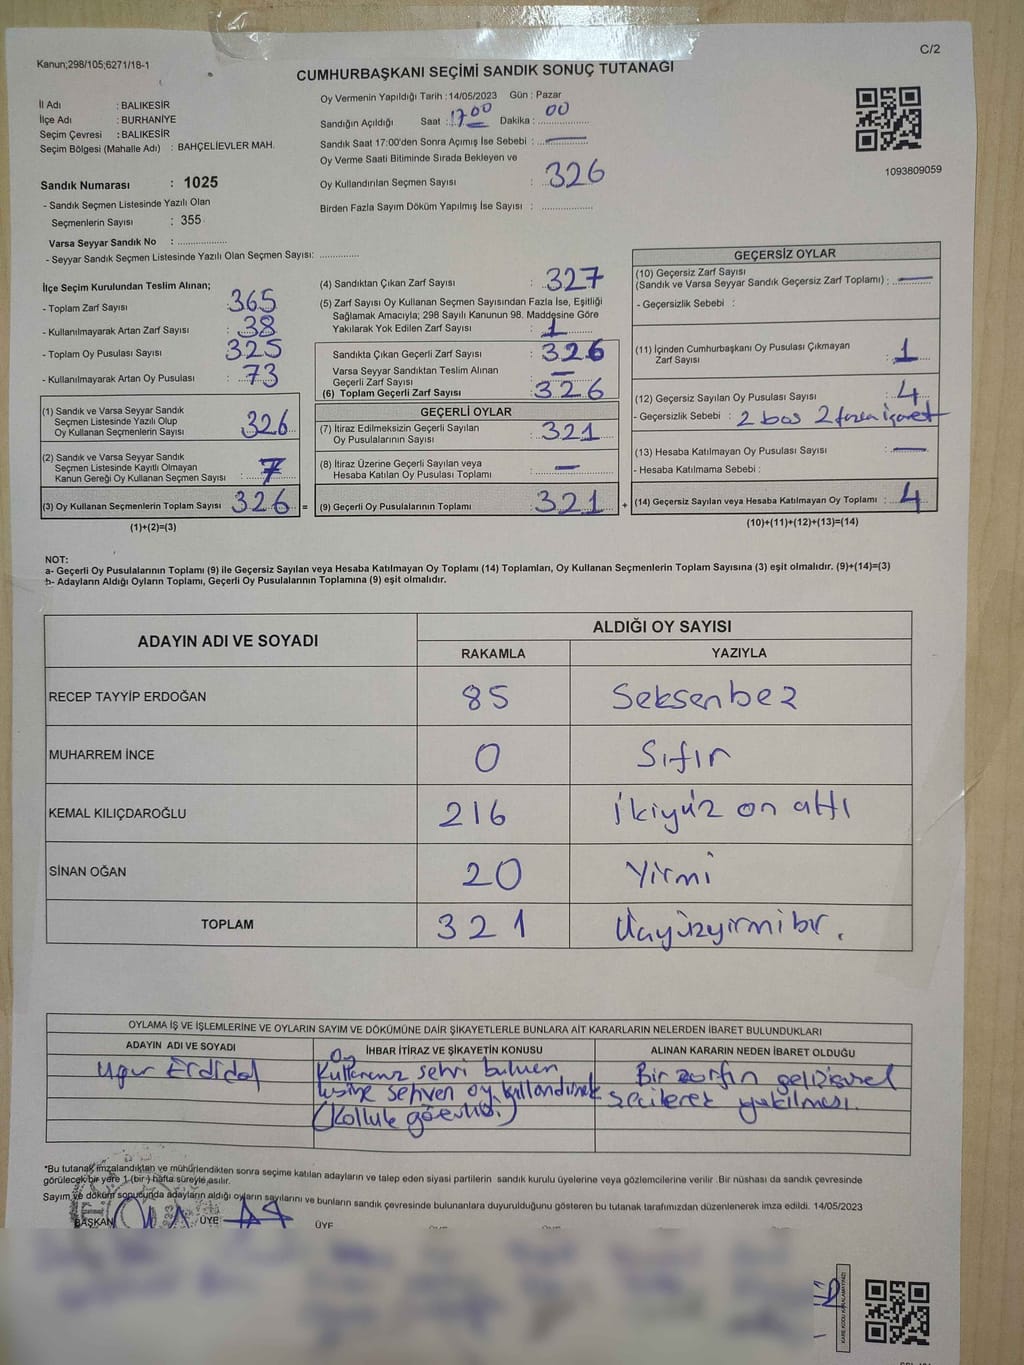 C/2
Kanun;298/105;6271/18-1
CUMHURBAŞKANI SEÇİMİ SANDIK SONUÇ TUTANAĞI
İl Adı : BALIKESİR
İlçe Adı : BURHANİYE
Seçim Çevresi : BALIKESİR
Seçim Bölgesi (Mahalle Adı) : BAHÇELİEVLER MAH.
Sandık Numarası : 1025
- Sandık Seçmen Listesinde Yazılı Olan
Seçmenlerin Sayısı : 355
Varsa Seyyar Sandık No : ..................
- Seyyar Sandık Seçmen Listesinde Yazılı Olan Seçmen Sayısı: ..............
Oy Vermenin Yapıldığı Tarih :14/05/2023 Gün : Pazar
Sandığın Açıldığı Saat : 17.00 Dakika : 00
Sandık Saat 17:00'den Sonra Açımış İse Sebebi : —
Oy Verme Saati Bitiminde Sırada Bekleyen ve
Oy Kullandırılan Seçmen Sayısı : 326
Birden Fazla Sayım Döküm Yapılmış İse Sayısı : ..............
1093809059
İlçe Seçim Kurulundan Teslim Alınan;
- Toplam Zarf Sayısı : 365
- Kullanılmayarak Artan Zarf Sayısı : 38
- Toplam Oy Pusulası Sayısı : 325
- Kullanılmayarak Artan Oy Pusulası : 73
(1) Sandık ve Varsa Seyyar Sandık
Seçmen Listesinde Yazılı Olup
Oy Kullanan Seçmenlerin Sayısı : 326
(2) Sandık ve Varsa Seyyar Sandık
Seçmen Listesinde Kayıtlı Olmayan
Kanun Gereği Oy Kullanan Seçmen Sayısı :
(3) Oy Kullanan Seçmenlerin Toplam Sayısı : 326 =
(1)+(2)=(3)
(4) Sandıktan Çıkan Zarf Sayısı : 327
(5) Zarf Sayısı Oy Kullanan Seçmen Sayısından Fazla İse, Eşitliği
Sağlamak Amacıyla; 298 Sayılı Kanunun 98. Maddesine Göre
Yakılarak Yok Edilen Zarf Sayısı : 1
Sandıkta Çıkan Geçerli Zarf Sayısı : 326
Varsa Seyyar Sandıktan Teslim Alınan
Geçerli Zarf Sayısı : —
(6) Toplam Geçerli Zarf Sayısı : 326
GEÇERLİ OYLAR
(7) İtiraz Edilmeksizin Geçerli Sayılan
Oy Pusulalarının Sayısı : 321
(8) İtiraz Üzerine Geçerli Sayılan veya
Hesaba Katılan Oy Pusulası Toplamı : —
(9) Geçerli Oy Pusulalarının Toplamı : 321 +
GEÇERSİZ OYLAR
(10) Geçersiz Zarf Sayısı
(Sandık ve Varsa Seyyar Sandık Geçersiz Zarf Toplamı) : —
- Geçersizlik Sebebi :
(11) İçinden Cumhurbaşkanı Oy Pusulası Çıkmayan
Zarf Sayısı : 1
(12) Geçersiz Sayılan Oy Pusulası Sayısı : 4
- Geçersizlik Sebebi : 2 boş 2 fazla işaret
(13) Hesaba Katılmayan Oy Pusulası Sayısı : —
- Hesaba Katılmama Sebebi :
(14) Geçersiz Sayılan veya Hesaba Katılmayan Oy Toplamı : 4
(10)+(11)+(12)+(13)=(14)
NOT:
a- Geçerli Oy Pusulalarının Toplamı (9) ile Geçersiz Sayılan veya Hesaba Katılmayan Oy Toplamı (14) Toplamları, Oy Kullanan Seçmenlerin Toplam Sayısına (3) eşit olmalıdır. (9)+(14)=(3)
b- Adayların Aldığı Oyların Toplamı, Geçerli Oy Pusulalarının Toplamına (9) eşit olmalıdır.
ADAYIN ADI VE SOYADI ALDIĞI OY SAYISI
RAKAMLA YAZIYLA
RECEP TAYYİP ERDOĞAN 85 Seksenbeş
MUHARREM İNCE 0 Sıfır
KEMAL KILIÇDAROĞLU 216 İkiyüz on altı
SİNAN OĞAN 20 Yirmi
TOPLAM 321 Üçyüzyirmibir.
OYLAMA İŞ VE İŞLEMLERİNE VE OYLARIN SAYIM VE DÖKÜMÜNE DAİR ŞİKAYETLERLE BUNLARA AİT KARARLARIN NELERDEN İBARET BULUNDUKLARI
ADAYIN ADI VE SOYADI İHBAR İTİRAZ VE ŞİKAYETİN KONUSU ALINAN KARARIN NEDEN İBARET OLDUĞU
Uğur Oy bulunan Bir zarfın gelişigüzel
sehven oy kullandırmak seçilerek yakılması.
(Kolluk görevlisi)
*Bu tutanak imzalandıktan ve mühürlendikten sonra seçime katılan adayların ve talep eden siyasi partilerin sandık kurulu üyelerine veya gözlemcilerine verilir .Bir nüshası da sandık çevresinde
görülecek bir yere 1 (bir ) hafta süreyle asılır.
Sayım ve döküm sonucunda adayların aldığı oyların sayılarını ve bunların sandık çevresinde bulunanlara duyurulduğunu gösteren bu tutanak tarafımızdan düzenlenerek imza edildi. 14/05/2023
BAŞKAN ÜYE ÜYE